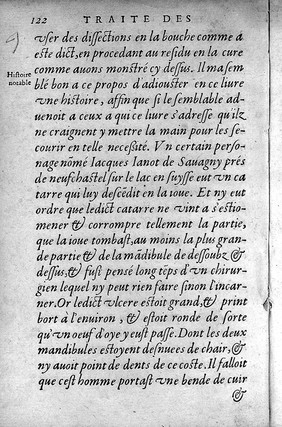 122 TRAITE DES
vser des dissections en la bouche comme à
este dict, en procedant au residu en la cure
comme auons monstré cy dessus. Il ma sem
Histoire
notable
blé bon a ce propos d'adiouster en ce liure
vne histoire, affin que si le semblable ad-
uenoit a ceux a qui ce liure s'adresse qu'ilz
ne craignent y mettre la main pour les se-
courir en telle necessité. Vn certain perso-
nage nõmé Iacques Ianot de Sauagny prés
de neufchastel sur le lac en suysse eut vn ca
tarre qui luy descẽdit en la ioue. Et ny eut
ordre que ledict catarre ne vint a s'estio-
mener & corrompre tellement la partie,
que la ioue tombast, au moins la plus gran-
de partie & de la mãdibule de dessoubz &
dessus, & fust pensé long tẽps d'vn chirur-
gien lequel ny peut rien faire sinon l'incar-
ner. Or ledict vlcere estoit grand, & print
bort à l'enuiron, & estoit ronde de sorte
qu'vn oeuf d'oye y eust passé. Dont les deux
mandibules estoyent desnuees de chair, &
ny auoit point de dents de ce coste. Il falloit
que cest homme portast vne bende de cuir
&